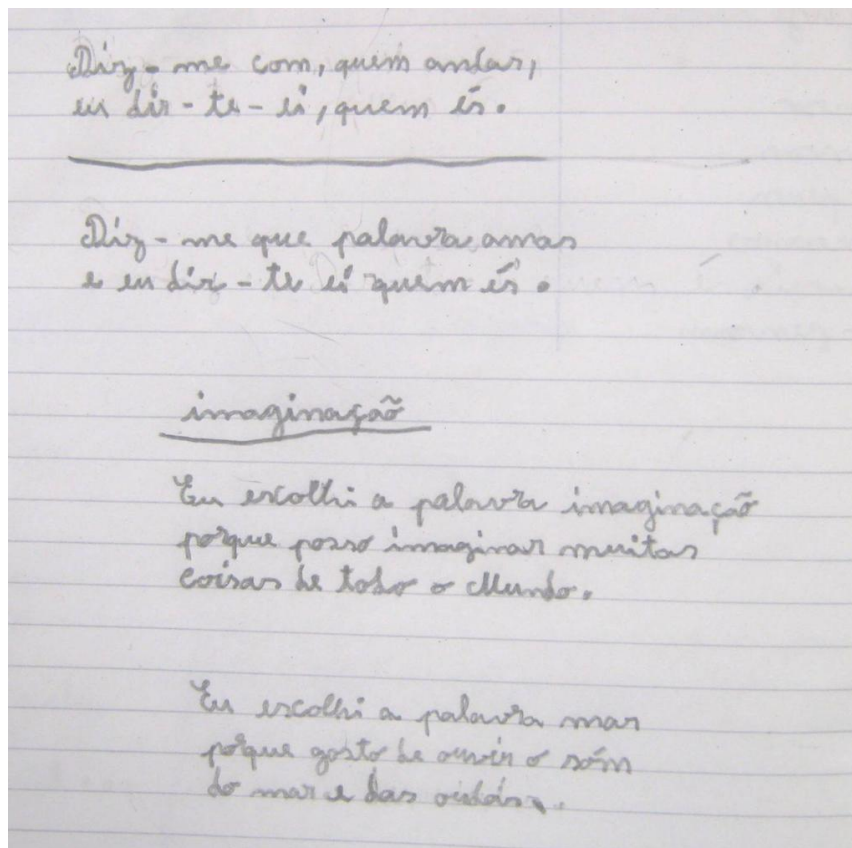 Diz-me com, quem andas,
eu dir-te-ei, quem és.
Diz-me que palavra amas
e eu dir-te ei quem és.
imaginação
Eu escolhi a palavra imaginação
porque posso imaginar muitas
coisas de todo o Mundo.
Eu escolhi a palavra mar
porque gosto de ouvir o sóm
do mar e das